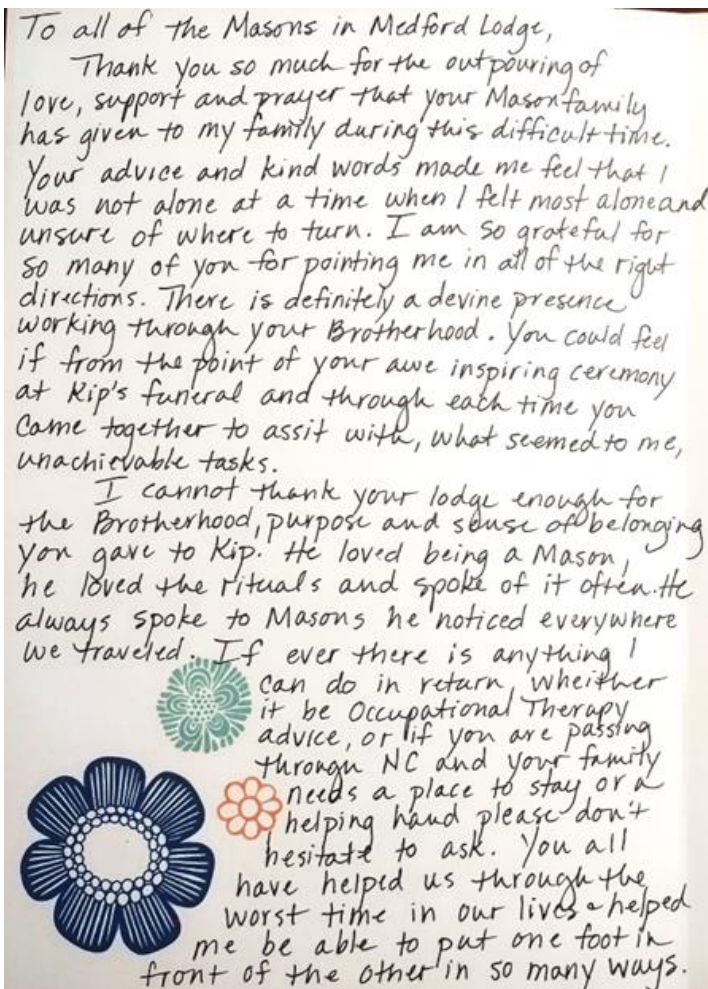 To all of the Masons in Medford Lodge,
Thank you so much for the outpouring of
love, support and prayer that your Mason family
has given to my family during this difficult time.
Your advice and kind words made me feel that I
was not alone at a time when I felt most alone and
unsure of where to turn. I am so grateful for
so many of you for pointing me in all of the right
directions. There is definitely a devine presence
working through your Brotherhood. You could feel
if from the point of your awe inspiring ceremony
at Kip's funeral and through each time you
came together to assit with, what seemed to me,
unachievable tasks.
I cannot thank your lodge enough for
the Brotherhood, purpose and sense of belonging
you gave to Kip. He loved being a Mason,
he loved the rituals and spoke of it often. He
always spoke to Masons he noticed everywhere
we traveled. If ever there is anything I
can do in return, wheither
it be Occupational Therapy
advice, or if you are passing
through NC and your family
needs a place to stay or a
helping hand please don't
hesitate to ask. You all
have helped us through the
worst time in our lives & helped
me be able to put one foot in
front of the other in so many ways.